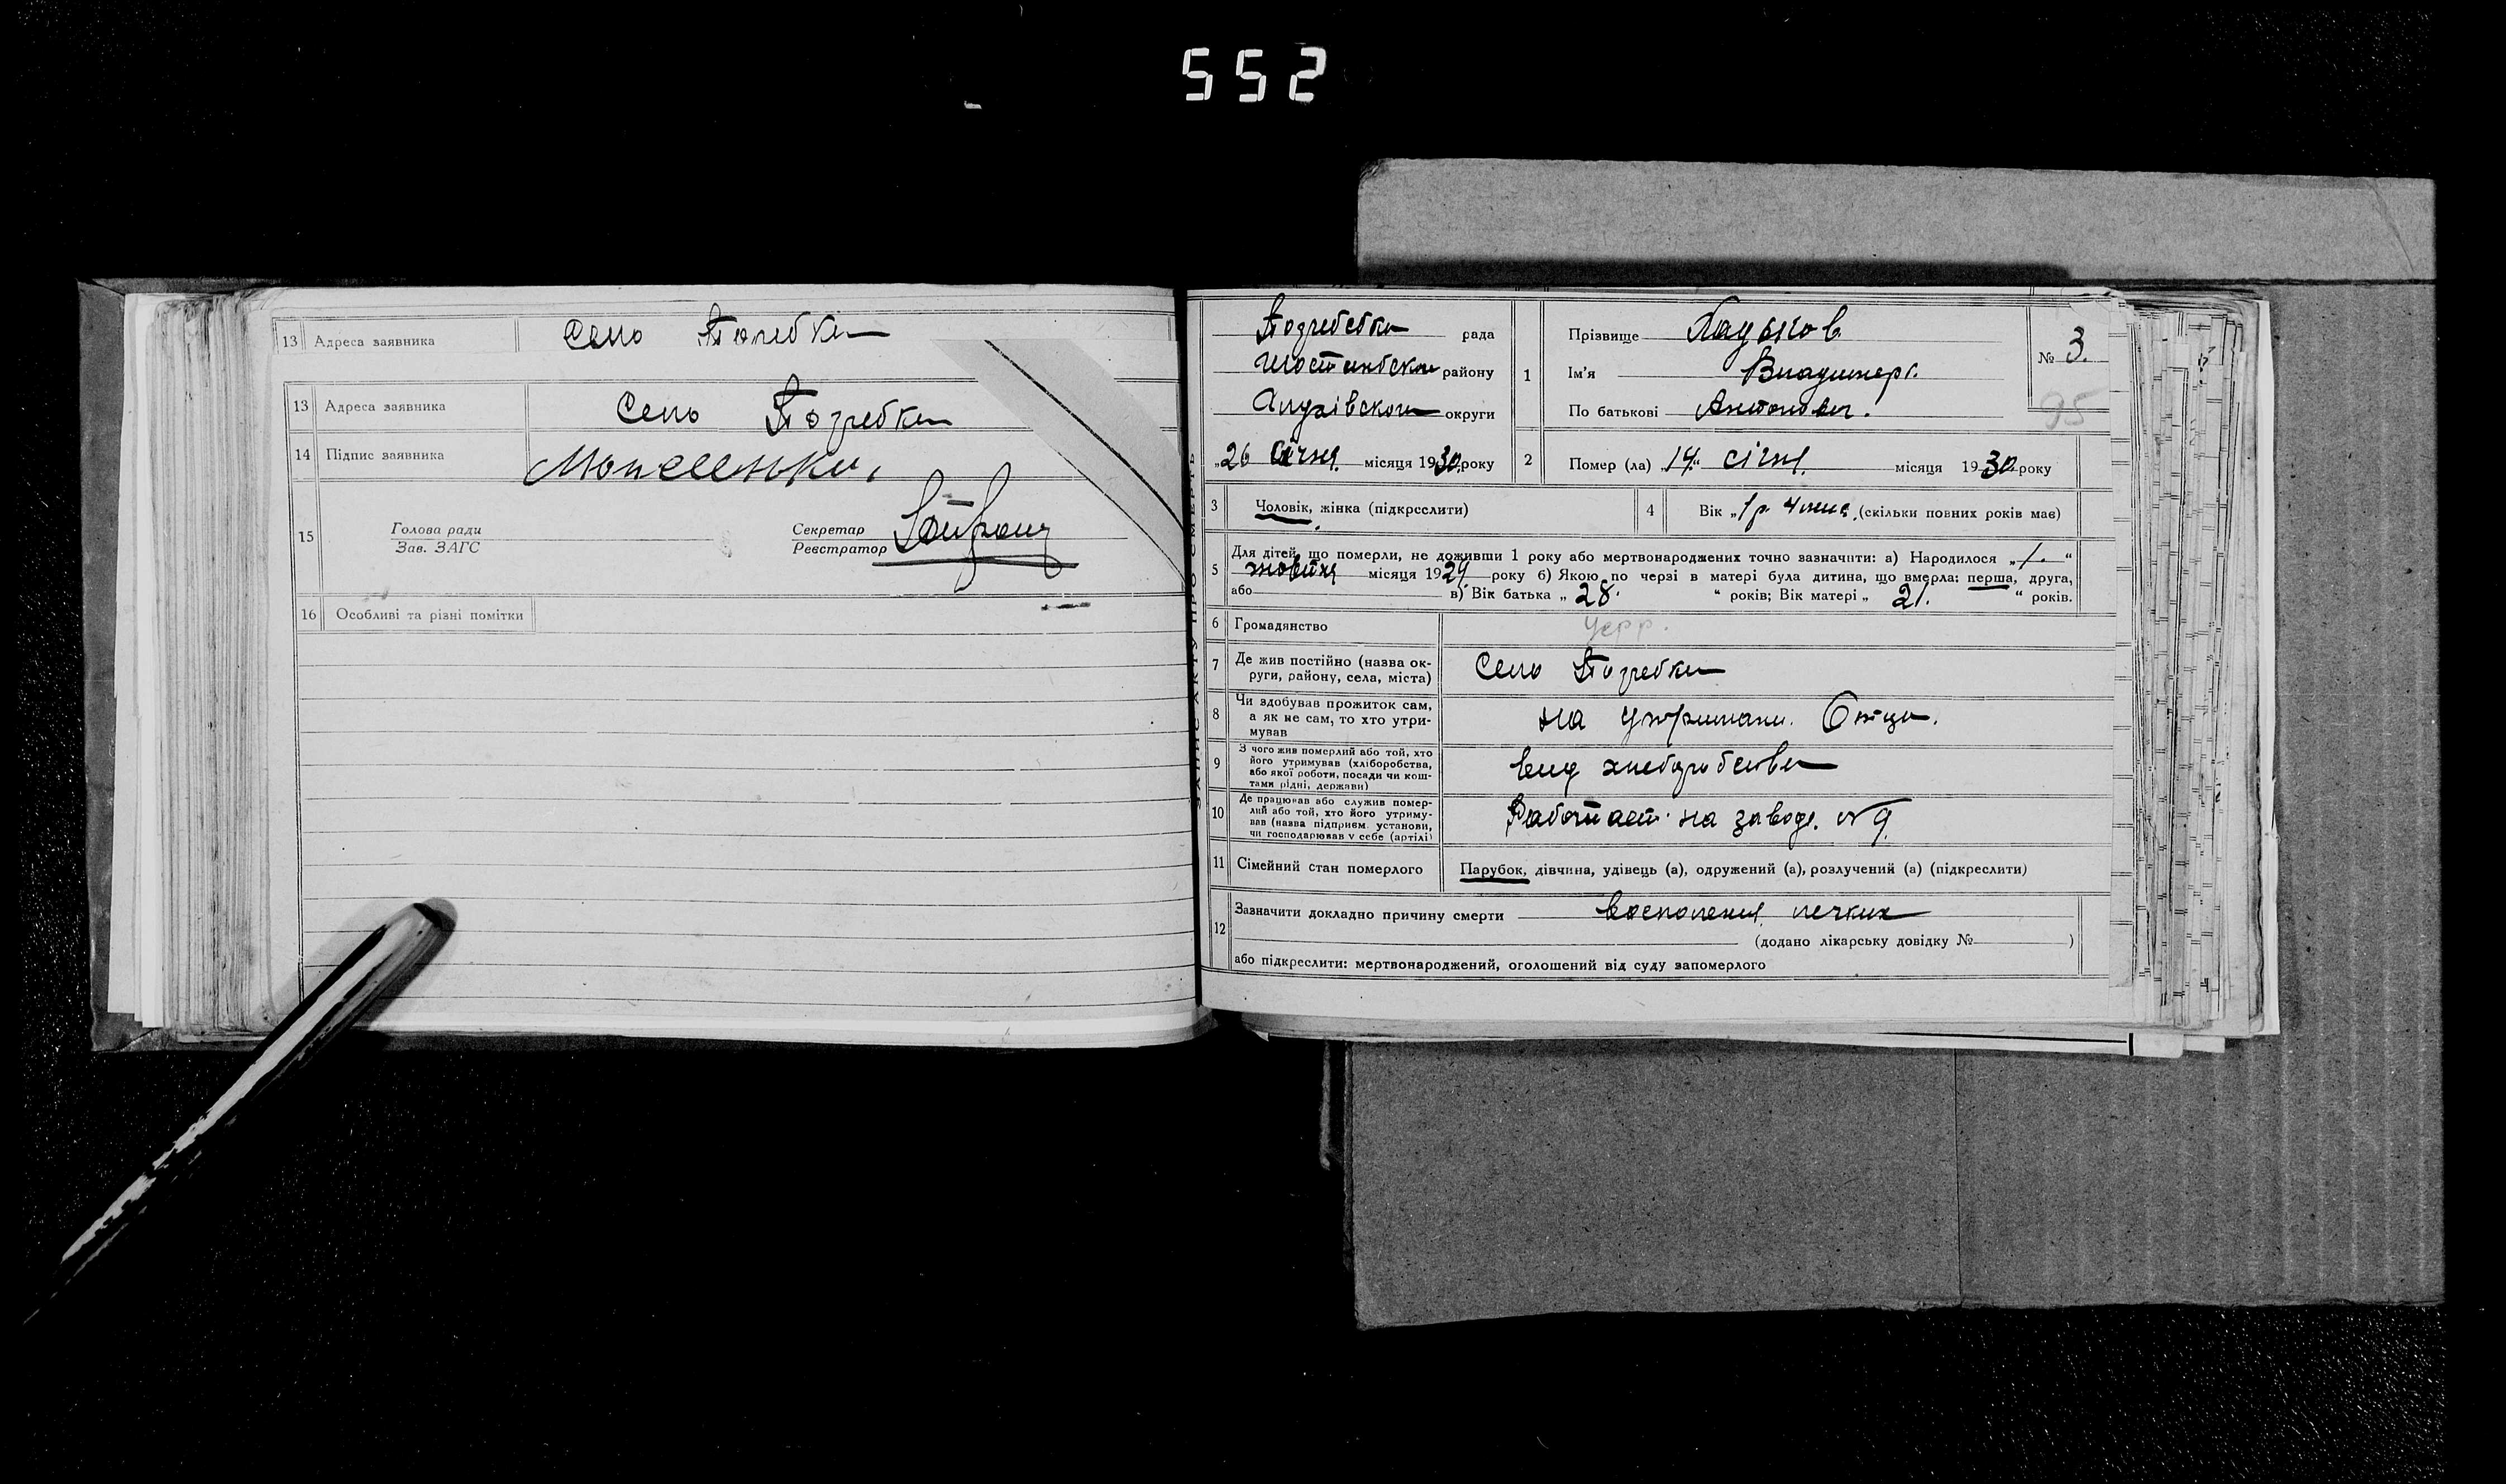 552
13 Адреса заявника Село Погребки
13 Адреса заявника Село Погребки
14 Підпис заявника
15 Голова ради
Зав. ЗАГС
Секретар
Реєстратор
16 Особливі та різні помітки
ЗАПИС АКТУ ПРО СМЕРТЬ
рада
району
округи
„26 Січня місяця 1930 року
1 Прізвище
Ім'я Владимер.
По батькові Антонович.
№ 3.
95
2 Помер (ла) „14“ січня місяця 1930 року
3 Чоловік, жінка (підкреслити)
4 Вік „1 р. 4 меся. (скільки повних років має)
5 Для дітей, що померли, не доживши 1 року або мертвонароджених точно зазначити: а) Народилося „1.“
жовтня місяця 192 року б) Якою по черзі в матері була дитина, що вмерла: перша, друга,
або в) Вік батька „28.“ років; Вік матері „21.“ років.
6 Громадянство Усрр.
7 Де жив постійно (назва ок-
руги, району, села, міста) Село Погребки
8 Чи здобував прожиток сам,
а як не сам, то хто утри-
мував на утримани. Отца.
9 З чого жив померлий або той, хто
його утримував (хліборобства,
або якої роботи, посади чи кош-
тами рідні, держави) вид хлеборобства
10 Де працював або служив помер-
лий або той, хто його утриму-
вав (назва підприєм. установи,
чи господарював у себе (артілі) Работает на заводе. № 9.
11 Сімейний стан померлого Парубок, дівчина, удівець (а), одружений (а), розлучений (а) (підкреслити)
12 Зазначити докладно причину смерти восполения легких
(додано лікарську довідку № )
або підкреслити: мертвонароджений, оголошений від суду запомерлого